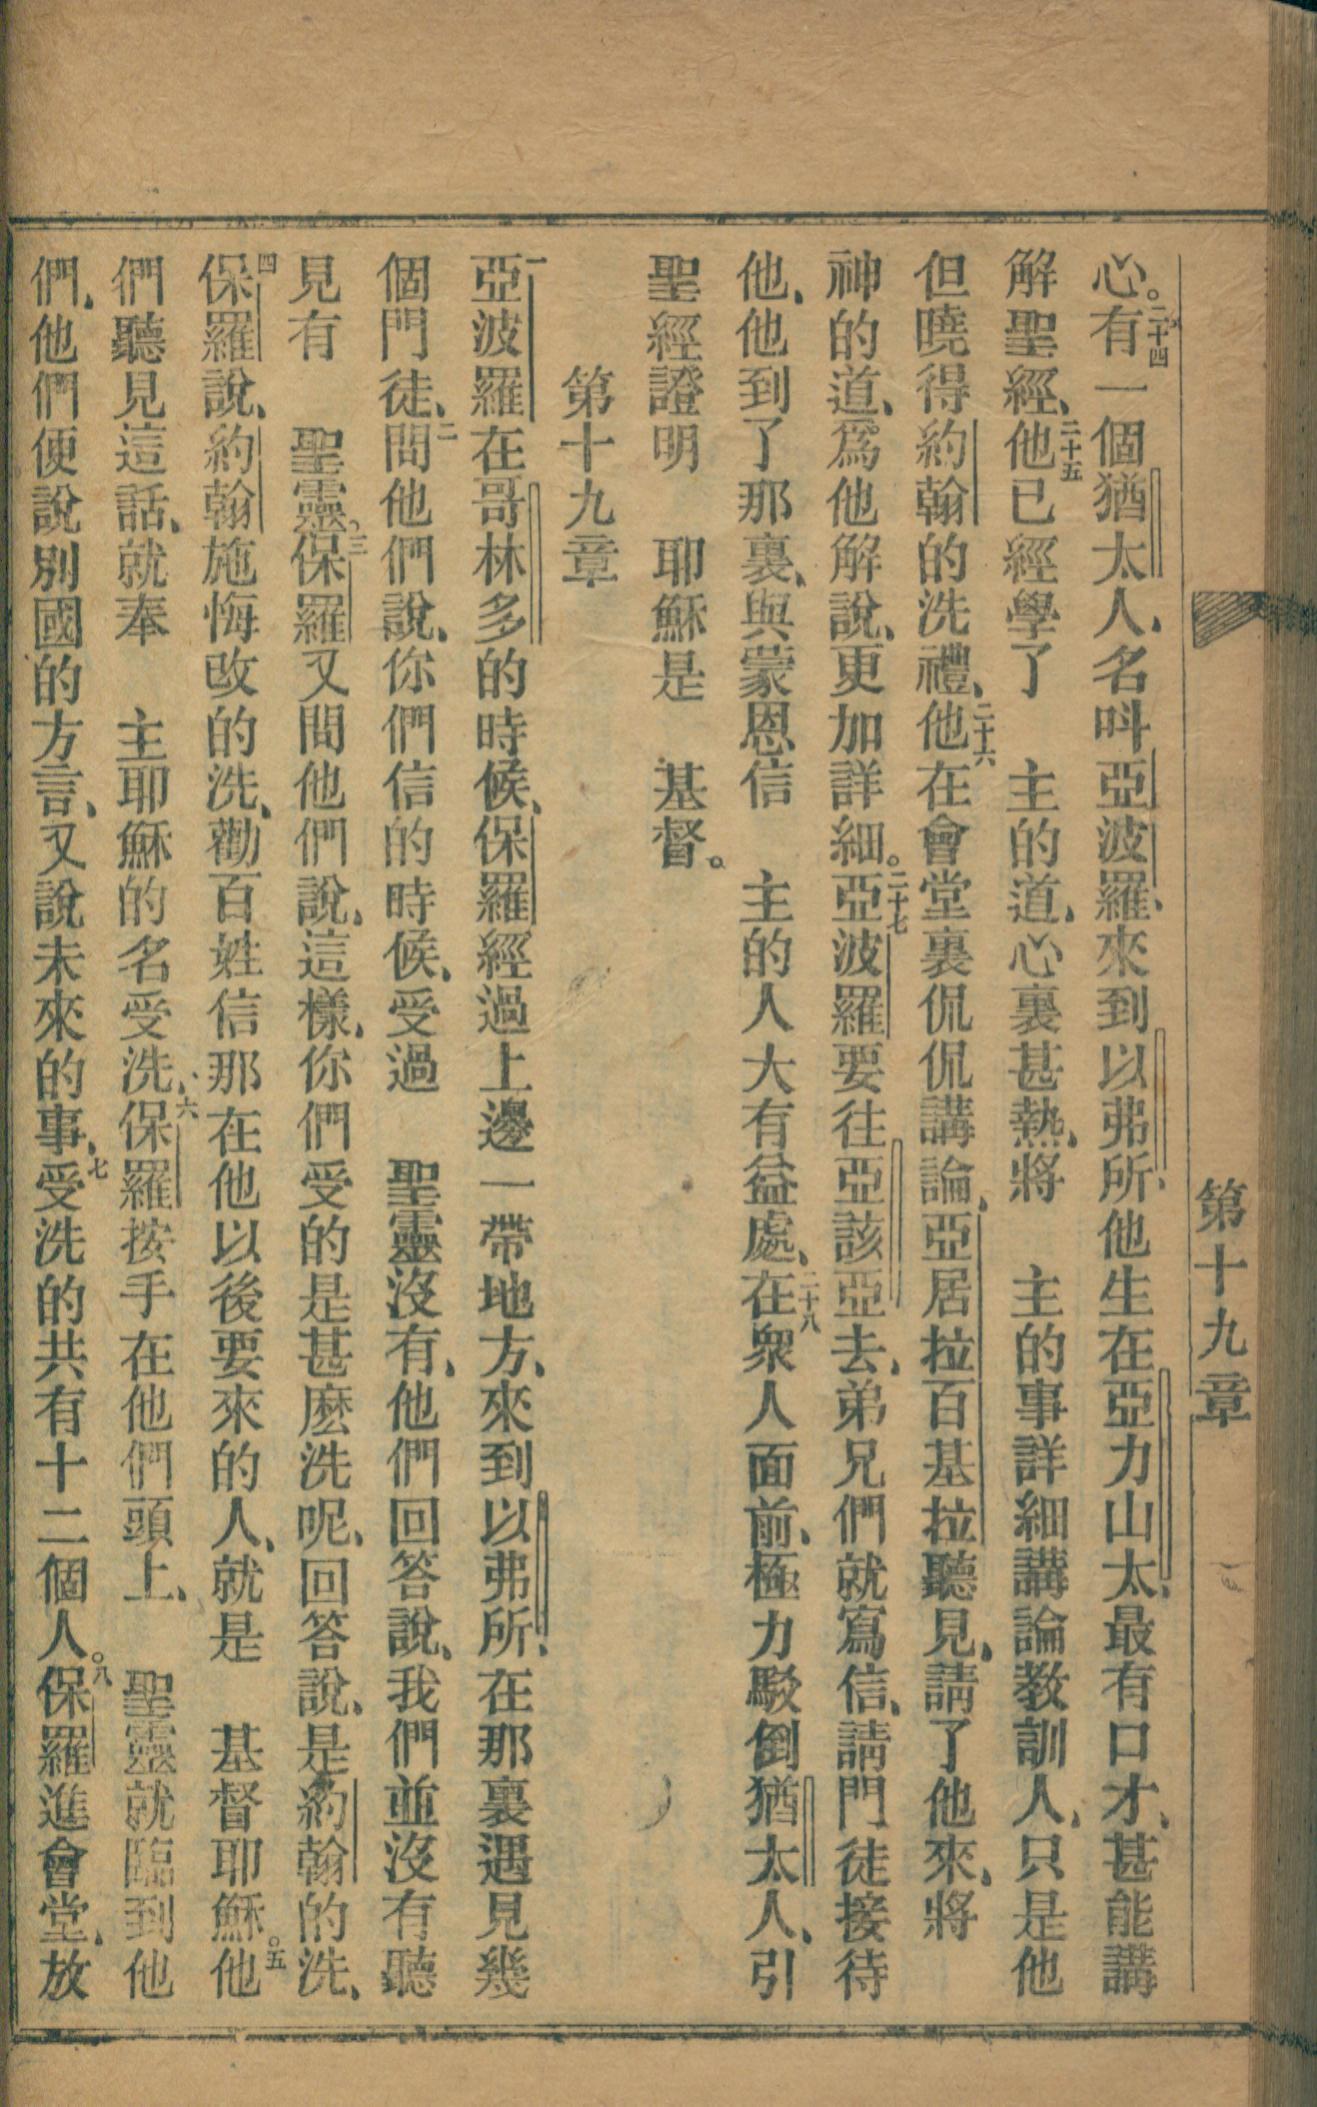 第十九章
心。二十四有一個猶太人、名呌亞波羅、來到以弗所、他生在亞力山太、最有口才、甚能講
解聖經、二十五他已經學了　主的道、心裏甚熱、將　主的事詳細講論教訓人、只是他
但曉得約翰的洗禮、二十六他在會堂裏侃侃講論、亞居拉百基拉聽見、請了他來、將
神的道、爲他解說、更加詳細。二十七亞波羅要往亞該亞去、弟兄們就寫信、請門徒接待
他、他到了那裏、與蒙恩信　主的人大有益處、二十八在衆人面前、極力駁倒猶太人、引
聖經證明　耶穌是　基督。
第十九章
一亞波羅在哥林多的時候、保羅經過上邊一帶地方、來到以弗所、在那裏遇見幾
個門徒、二問他們說、你們信的時候、受過　聖靈沒有、他們回答說、我們並沒有聽
見有　聖靈。三保羅又問他們說、這樣、你們受的是甚麽洗呢、回答說、是約翰的洗、
四保羅說、約翰施悔改的洗、勸百姓信那在他以後要來的人、就是　基督耶穌。五他
們聽見這話、就奉　主耶穌的名受洗、六保羅按手在他們頭上、　聖靈就臨到他
們、他們便說別國的方言、又說未來的事、七受洗的共有十二個人。八保羅進會堂、放